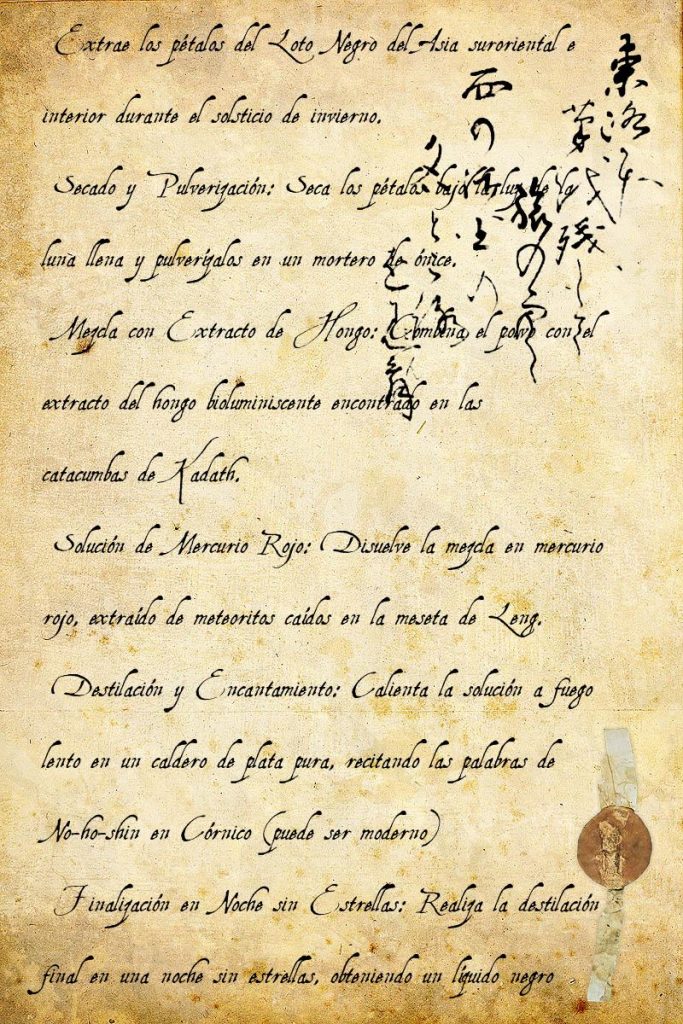 Extrae los pétalos del Loto Negro del Asia suroriental e
interior durante el solsticio de invierno.
Secado y Pulverización: Seca los pétalos bajo la luz de la
luna llena y pulverízalos en un mortero de ónice.
Mezcla con Extracto de Hongo: Combina el polvo con el
extracto del hongo bioluminiscente encontrado en las
catacumbas de Kadath.
Solución de Mercurio Rojo: Disuelve la mezcla en mercurio
rojo, extraído de meteoritos caídos en la meseta de Leng.
Destilación y Encantamiento: Calienta la solución a fuego
lento en un caldero de plata pura, recitando las palabras de
No-ho-shin en Córnico (puede ser moderno)
Finalización en Noche sin Estrellas: Realiza la destilación
final en una noche sin estrellas, obteniendo un líquido negro
旅の空
西の